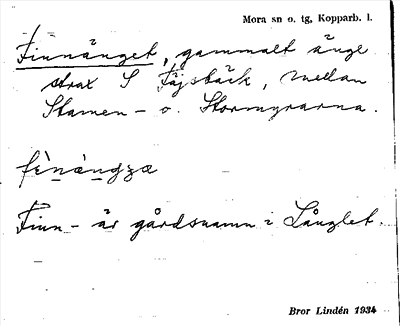 Mora sn o. tg, Kopparb. l.
Finnänget, gammalt änge
strax S Fäjsbäck, mellan
Stamen- o. Stormyrarna.
fènàngzæ
Finn- är gårdsnamn i Långlet.
Bror Lindén 1934